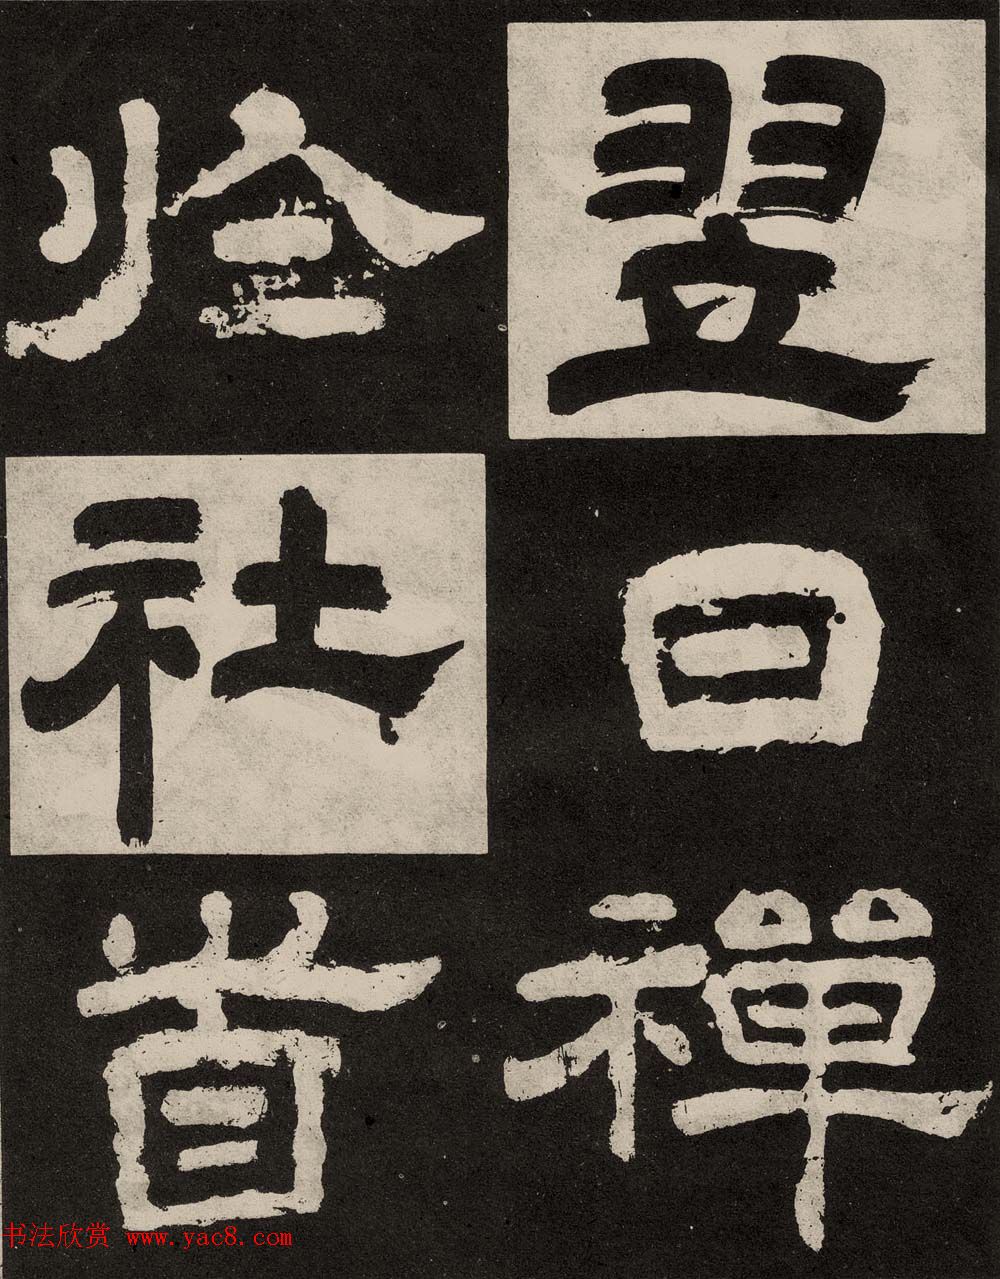 翌日禪
於社首
书法欣赏 www.yac8.com